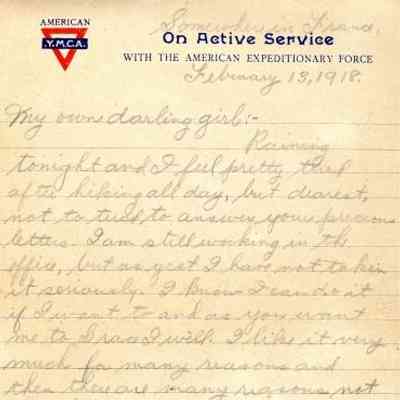 AMERICAN
Y.M.C.A.
Somewhere in France,
On Active Service
WITH THE AMERICAN EXPEDITIONARY FORCE
February 13, 1918.
My own darling girl:-
Raining
tonight and I feel pretty tired
after hiking all day, but dearest,
not to tired to answer your precious
letters. I am still working in the
office, but as yest I have not taken
it seriously. I know I can do it
if I want to and as you want
me to I will. I like it very
much for many reasons and
then there are many reasons not